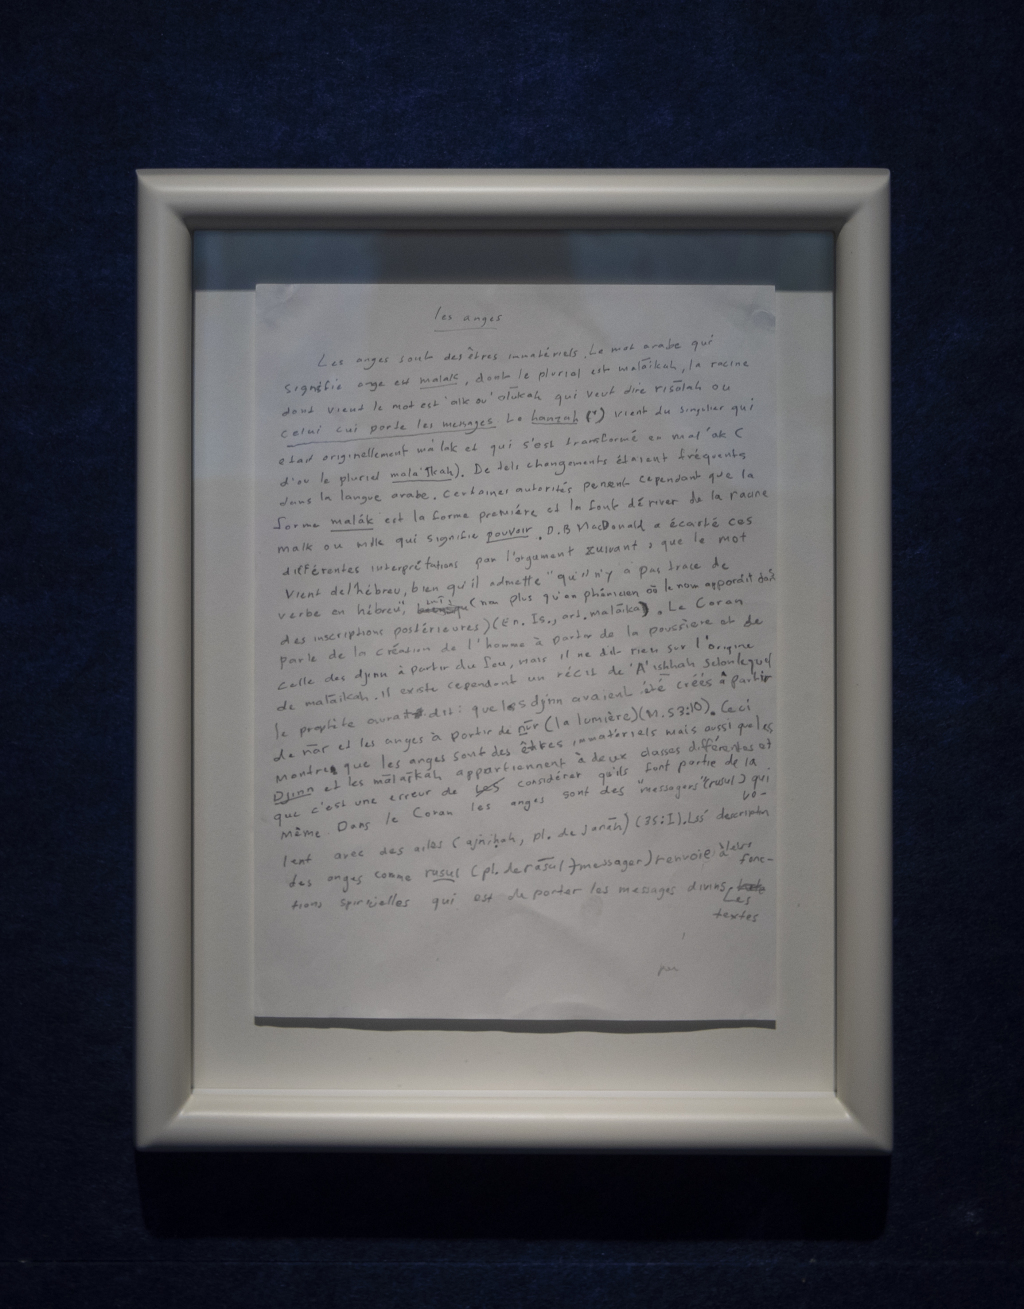 les anges
Les anges sont des êtres immatériels. Le mot arabe qui
signifie ange est malak, dont le pluriel est malāikah, la racine
dont vient le mot est 'alk ou' olūkah qui veut dire risālah ou
celui cui porte les messages. Le hamzah (') vient du singulier qui
etait originellement ma'lak et qui s'est transformé en mal'ak (
d'ou le pluriel mala'ikah). De tels changements étaient fréquents
dans la langue arabe. Certaines autorités pensent cependant que la
forme malāk est la forme première et la font dériver de la racine
malk ou milk qui signifie pouvoir. D.B MacDonald a écarté ces
différentes interprétations par l'argument suivant, que le mot
vient de l'hébreu, bien qu'il admette "qu'il n'y a pas trace de
verbe en hébreu", (non plus qu'en phénicien où le nom apparait dans
des inscriptions postérieures) (En. Is., art. malāika). Le Coran
parle de la création de l'homme à partir de la poussière et de
celle des djinn à partir du feu, mais il ne dit rien sur l'origine
de malāikah. Il existe cependant un récit de 'A'ishhah selon lequel
le prophète aurait dit: que les djinn avaient été créés à partir
de nār et les anges à partir de nūr (la lumière) (M. 53:10). Ceci
montre que les anges sont des êtres immatériels mais aussi que les
Djinn et les mālaīkah appartiennent à deux classes différentes et
que c'est une erreur de considérer qu'ils font partie de la
même Dans le Coran les anges sont des "messagers" (rusul) qui
vo-
lent avec des ailes (ajnihah, pl. de Janāh) (35:I). description
des anges comme rusul (pl. de rasul, messager) renvoie à leur
fonc-
tions spirituelles qui est de porter les messages divins
Les
textes